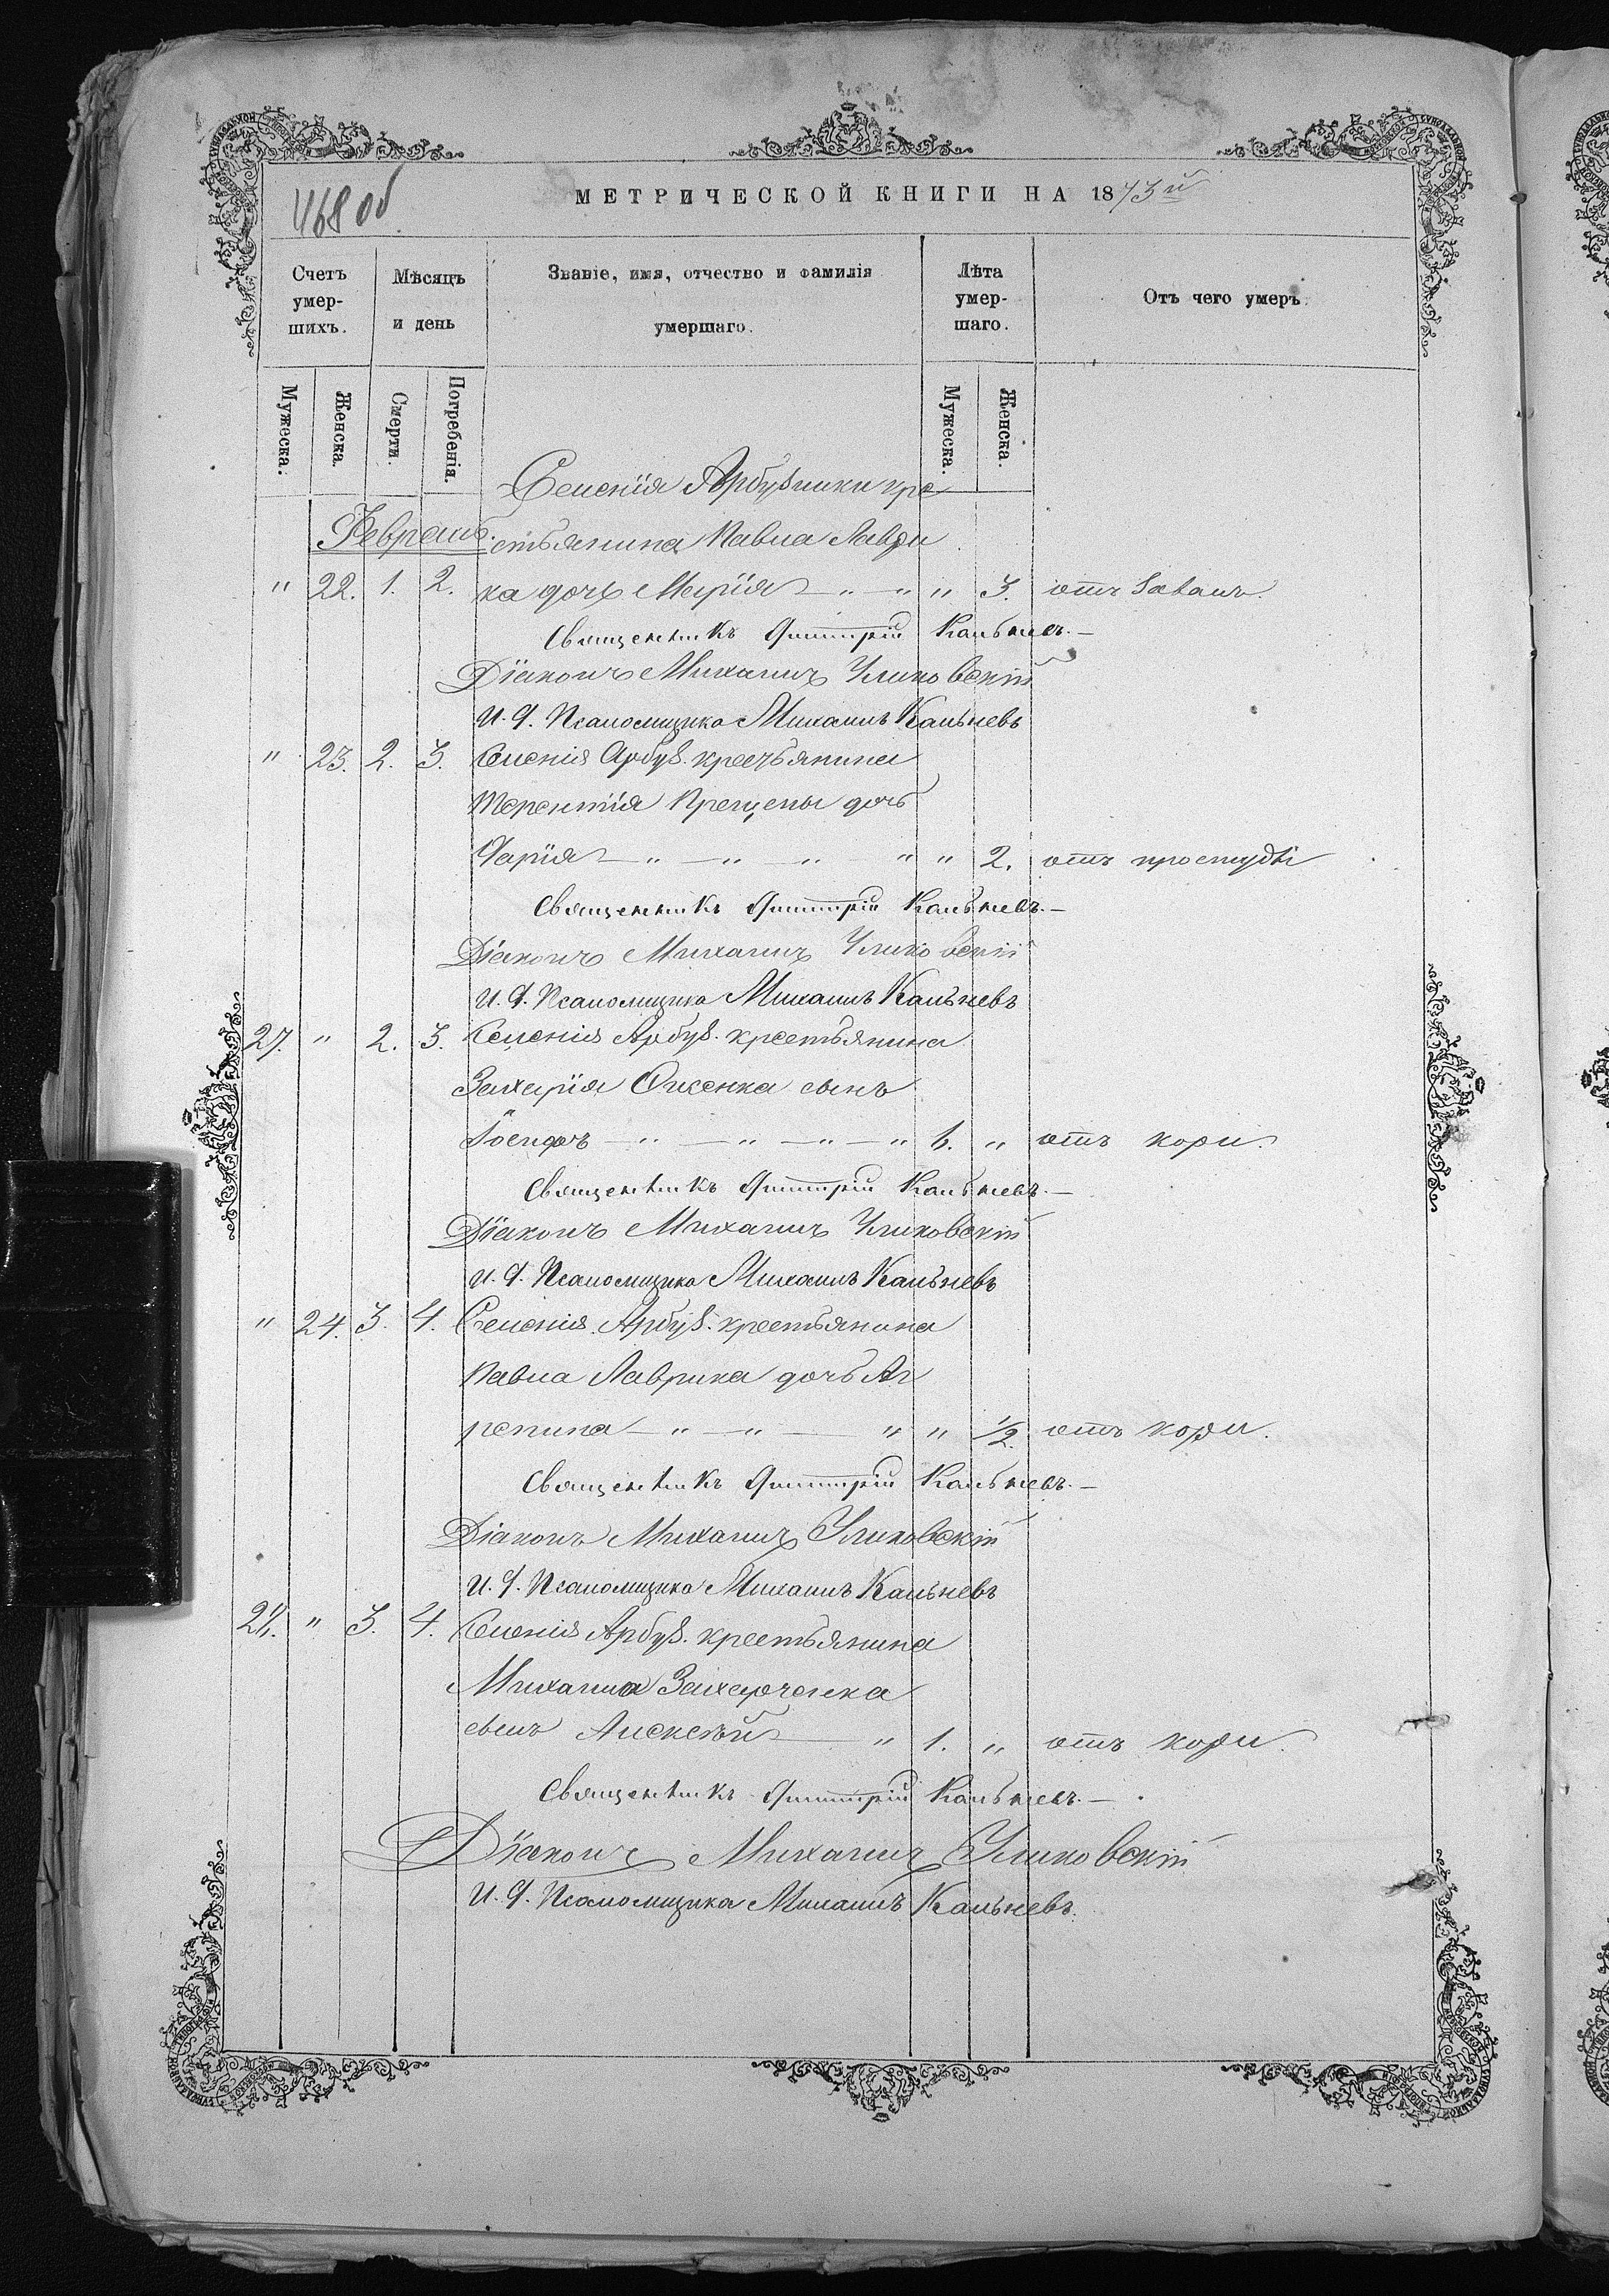 468 об
МЕТРИЧЕСКОЙ КНИГИ НА 1873й
Счетъ умер-шихъ.
Мѣсяцъ и день
Званіе, имя, отчество и фамилія умершаго.
Лѣта умер-шаго.
Отъ чего умеръ.
Мужеска.
Женска.
Смерти.
Погребенія.
Мужеска.
Женска.
Селенія Арбузинки кре
Февраль. стьянина Павла Лаври
" 22. 1. 2. ка дочь Марія — " — " " 3. отъ
Священникъ Димитрій Кальневъ. —
Діаконъ Михаилъ
И. д. Псаломщика Михаилъ Кальневъ
" 23. 2. 3. Селенія Арбуз. крестьянина
Терентія дочь
Дарія — " — " — " " " 2. отъ простуды
Священникъ Димитрій Кальневъ. —
Діаконъ Михаилъ
И. д. Псаломщика Михаилъ Кальневъ
27. " 2. 3. Селенія Арбуз. крестьянина
Захарія сынъ
Іосифъ — " — " — " — " 1. " отъ кори.
Священникъ Димитрій Кальневъ. —
Діаконъ Михаилъ
И. д. Псаломщика Михаилъ Кальневъ
" 24. 3. 4. Селенія Арбуз. крестьянина
Павла Лаврика дочь Аг
репина — " — " — " " 1/2. отъ кори.
Священникъ Димитрій Кальневъ. —
Діаконъ Михаилъ
И. д. Псаломщика Михаилъ Кальневъ
" 3. 4. Селенія Арбуз. крестьянина
Михаила Захарченка
сынъ Алексѣй — " 1. " отъ кори.
Священникъ Димитрій Кальневъ. —
Діаконъ Михаилъ
И. д. Псаломщика Михаилъ Кальневъ.